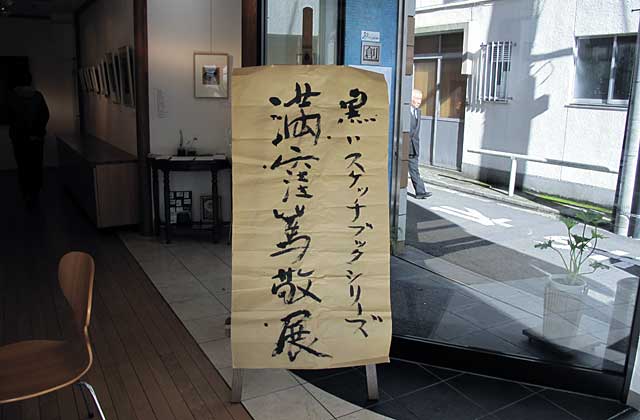 黒いスケッチブックシリーズ
満窪篤敬展
創